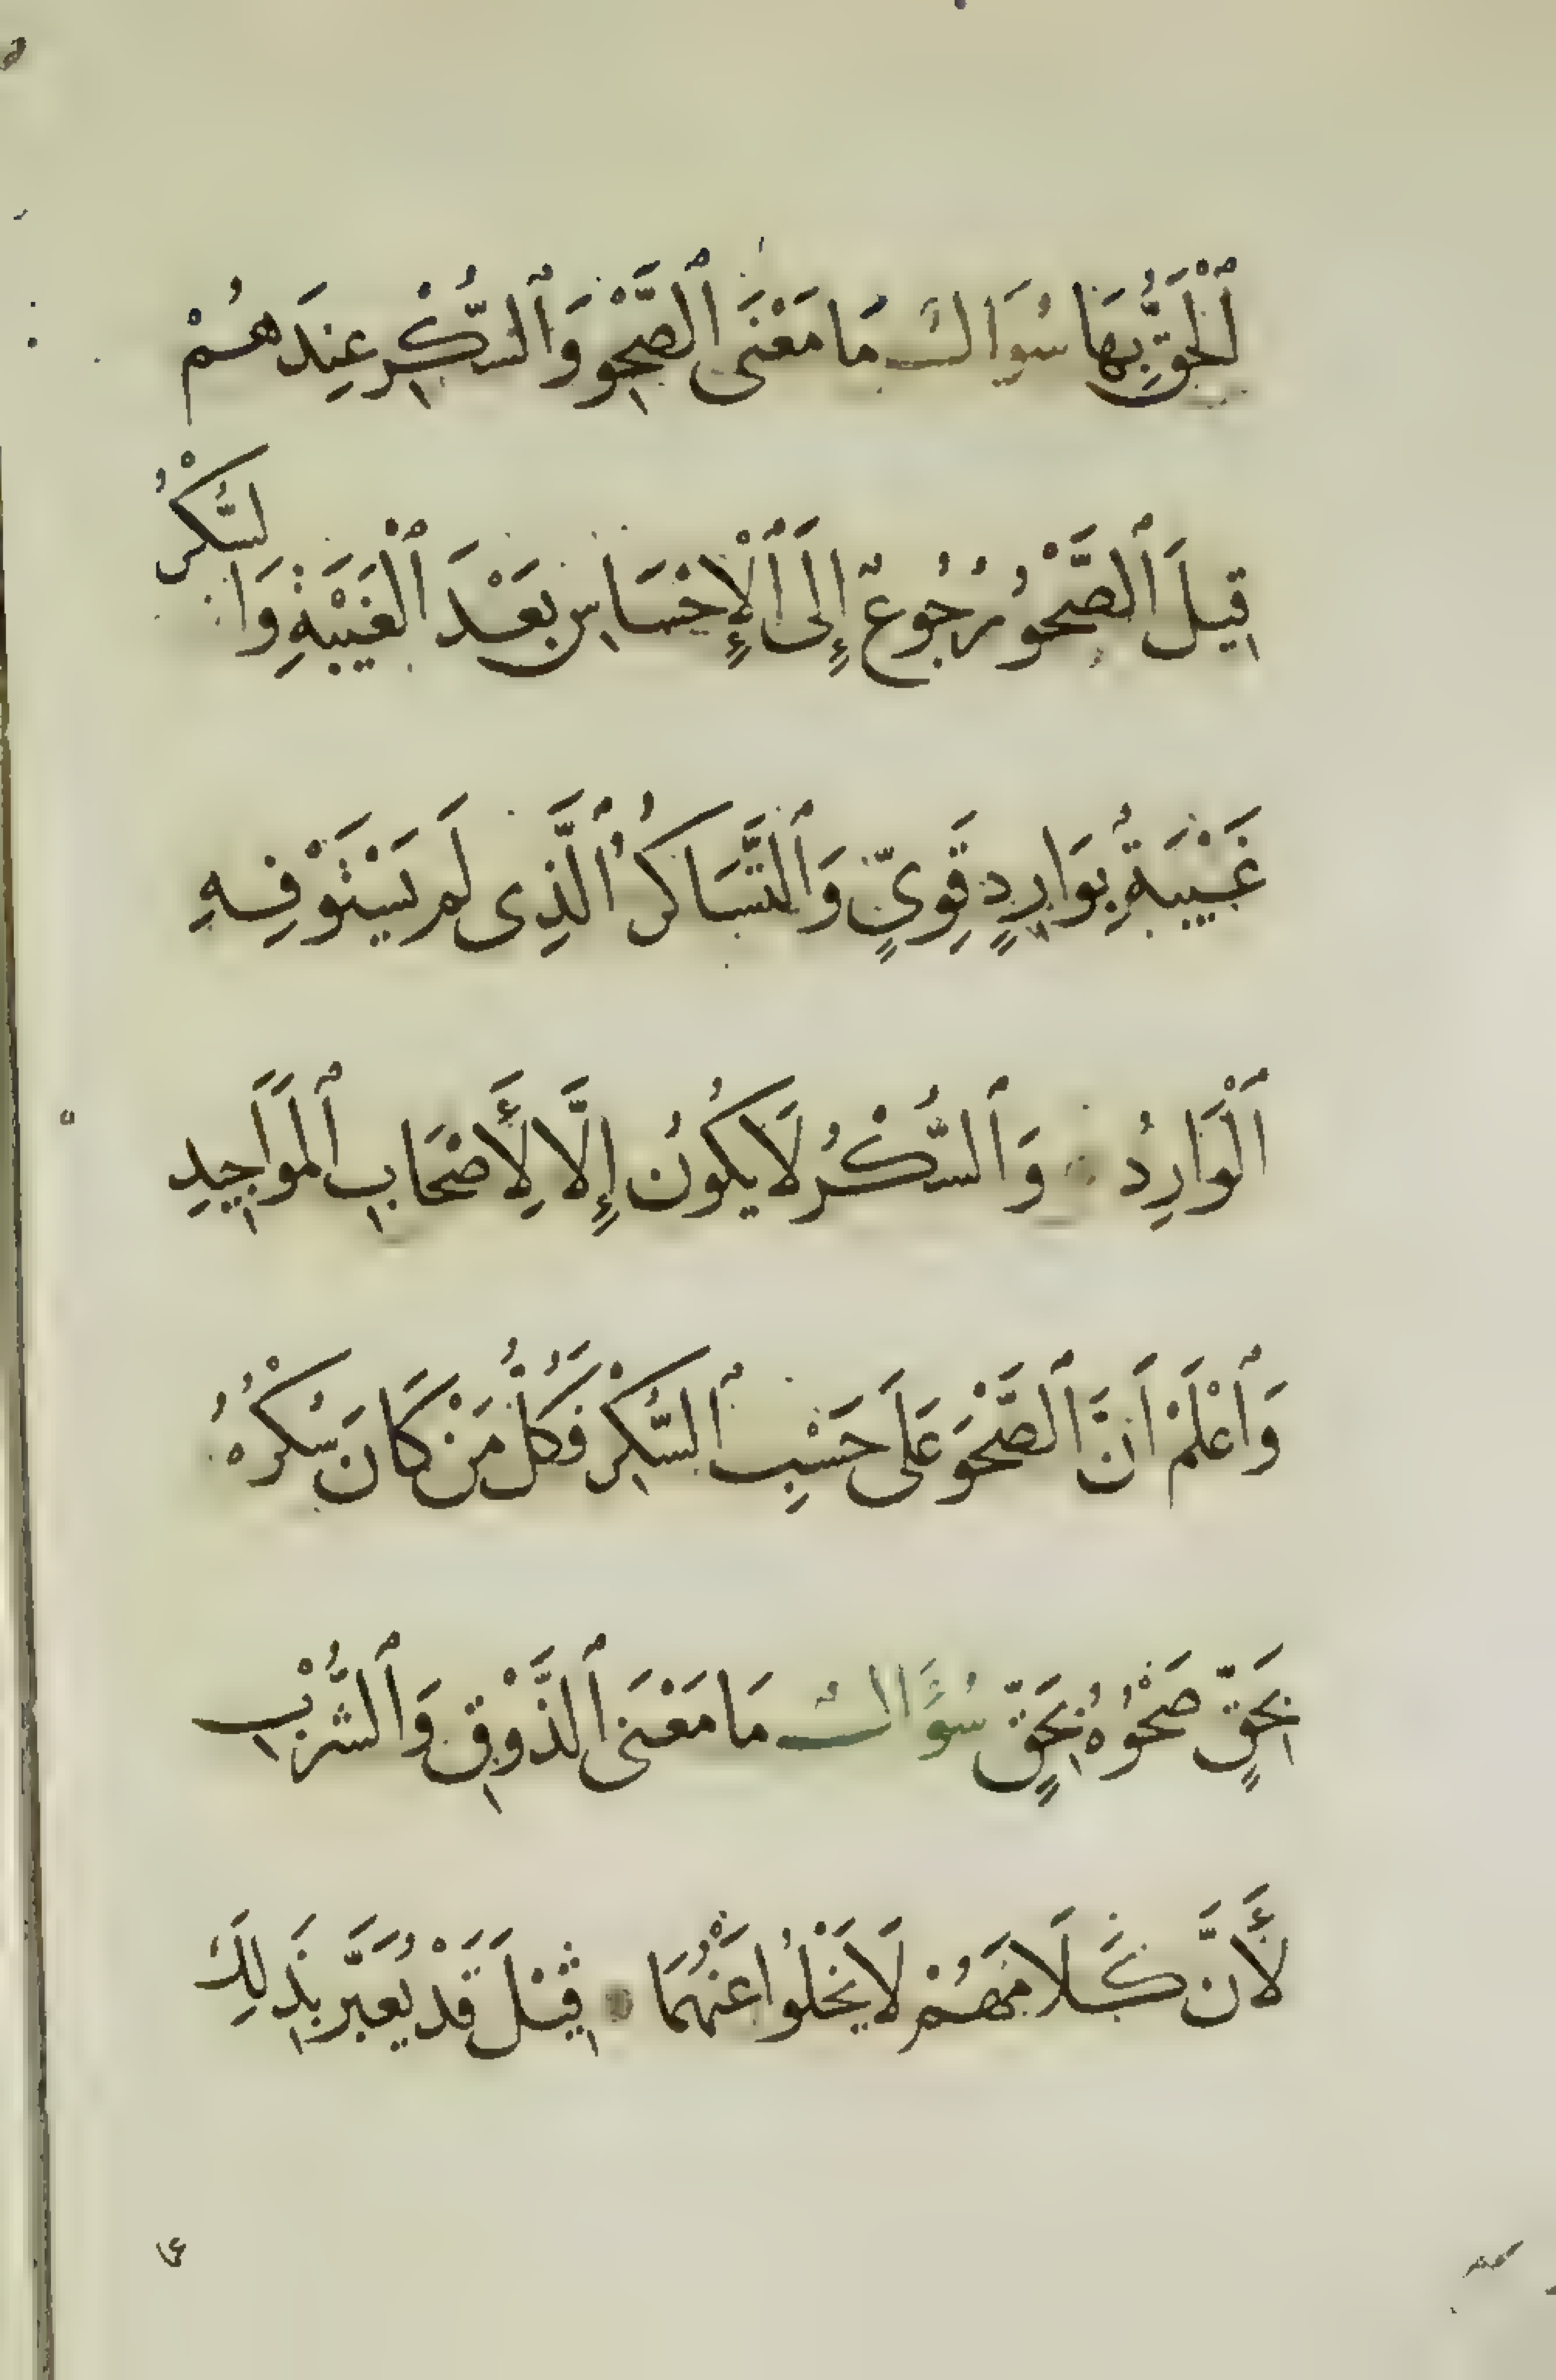 ٱلْحَقُّ بِهَا سُوَالٌ مَا مَعْنَى ٱلصَّحْوِ وَٱلسُّكْرِ عِنْدَهُمْ
قِيلَ ٱلصَّحْوُ رُجُوعٌ إِلَى ٱلْإِحْسَاسِ بَعْدَ ٱلْغَيْبَةِ وَالسُّكْرُ
غَيْبَةٌ بِوَارِدٍ قَوِيٍّ وَٱلتَّسَاكُرُ ٱلَّذِى لَمْ يَسْتَوْفِهِ
ٱلْوَارِدُ وَٱلسُّكْرُ لَا يَكُونُ إِلَّا لِأَصْحَابِ ٱلْمَوَاجِيدِ
وَٱعْلَمْ أَنَّ ٱلصَّحْوَ عَلَى حَسْبِ ٱلسُّكْرِ فَكُلُّ مَنْ كَانَ سُكْرُهُ
بِحَقٍّ صَحْوُهُ بِحَقٍّ سُؤَالٌ مَا مَعْنَى ٱلذَّوْقِ وَٱلشُّرْبِ
لِأَنَّ كَلَامَهُمْ لَا يَخْلُوا عَنْهُمَا قِيْلَ قَدْ يُعَبَّرُ بِذَلِكَ